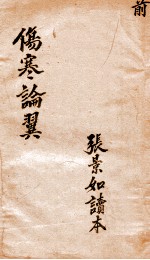 前
傷寒論翼
張景如讀本